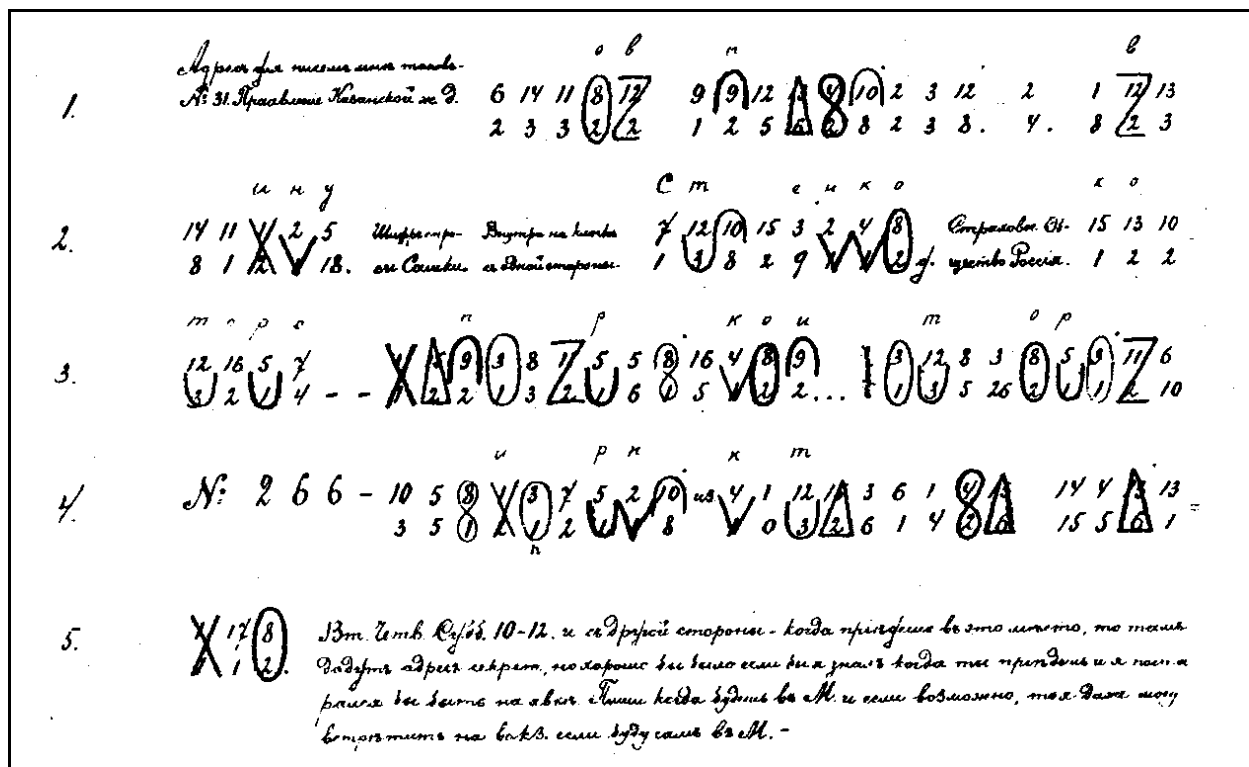 о в п в
1. Адресъ для писемъ мнѣ таковъ-
№ 31. Правленіе Казанской ж. д. 6 14 11 8 12 9 9 12 4 10 2 3 12 2 1 12 13
2 3 3 2 2 1 2 5 6 2 8 2 3 8. 4. 8 2 3
и н у С т е и к о х о
2. 14 11 11 2 5 7 12 10 15 3 2 4 8 Страховое Об- 15 13 10
8 1 2 1 18. 1 3 8 2 9 1 1 2 щество Россія. 1 2 2
т с р с п р к о и т о р
3. 12 16 5 7 9 3 8 11 5 5 8 16 4 8 9 3 12 8 3 8 5 3 11 6
3 2 1 4 - - 2 2 1 3 2 1 6 1 5 1 2 2 ... 1 3 5 26 2 1 1 2 10
и р н к т
4. № 2 6 6 - 10 5 8 3 7 5 2 10 из 4 1 12 3 6 1 4 14 4 13
3 5 1 2 1 2 1 1 8 1 0 3 2 6 1 4 2 6 15 5 6 1 =
п
5. 17 8
1 2.
Вт. Четв. Субб. 10-12. и съ другой стороны - когда пріѣдешь въ это мѣсто, то тамъ
дадутъ адресъ секрет., но хорошо бы было если бы я зналъ когда ты пріѣдешь и я поста
рался бы быть на явкѣ. Пиши когда будешь въ М. и если возможно, то я даже могу
встрѣтить на вокз. если буду самъ въ М. -